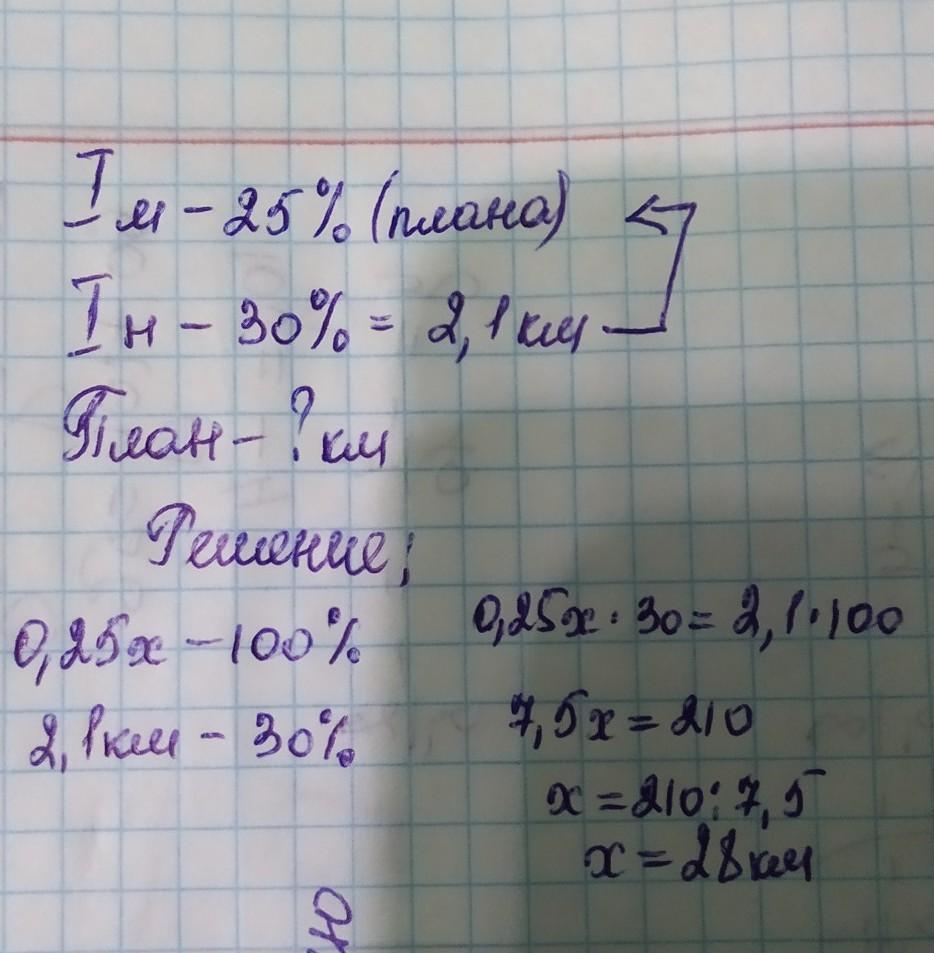 I м – 25% (плана)
I н – 30% = 2,1 км
План – ? км
Решение;
0,25x – 100%
2,1 км – 30%
0,25x · 30 = 2,1 · 100
7,5x = 210
x = 210 : 7,5
x = 28 км